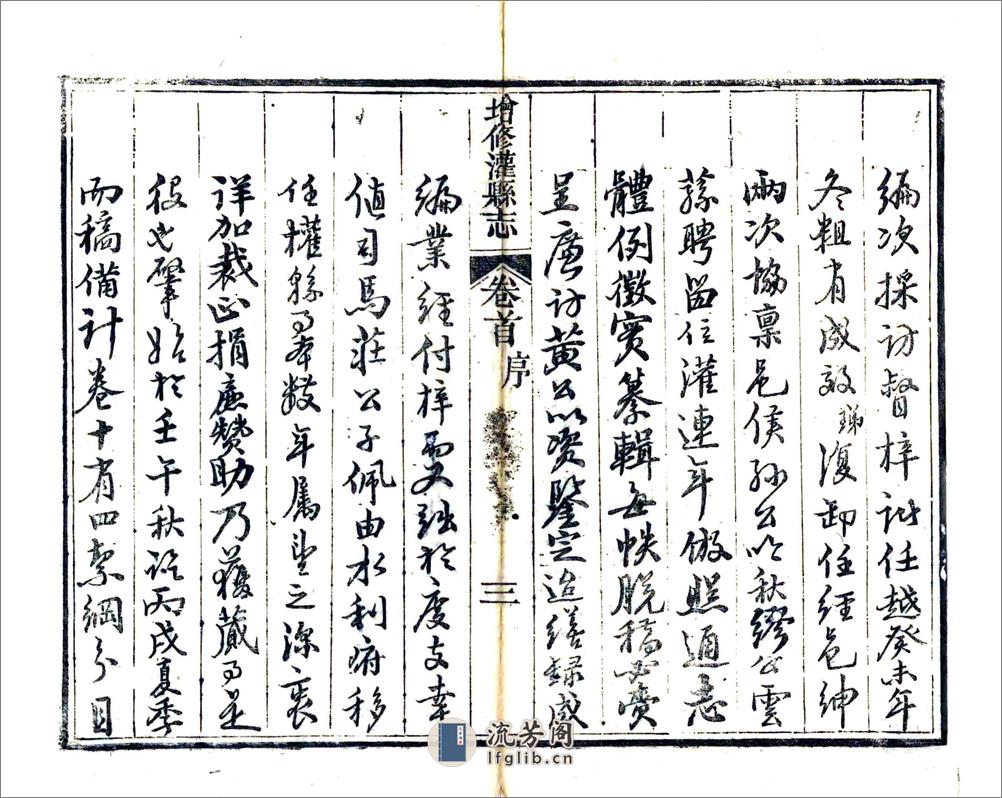 編次採訪督梓計任越癸未年
冬粗有成效錦復卸任經邑紳
兩次協稟邑侯孫公以秋繆公雲
蓀聘留住灌連年倣照通志
體例徵實纂輯每帙脫稿必賷
呈廉訪黃公以資鑒定追繕錄成
增修灌縣志
卷首 序
三
編業經付梓而又絀於度支幸
值司馬莊公子佩由水利府移
任權縣事本數年屬望之深衷
詳加裁正捐廉贊助乃獲蕆事是
役也肇始於壬午秋訖丙戌夏季
而稿備計卷十有四絜綱分目
流芳阁
lfglib.cn